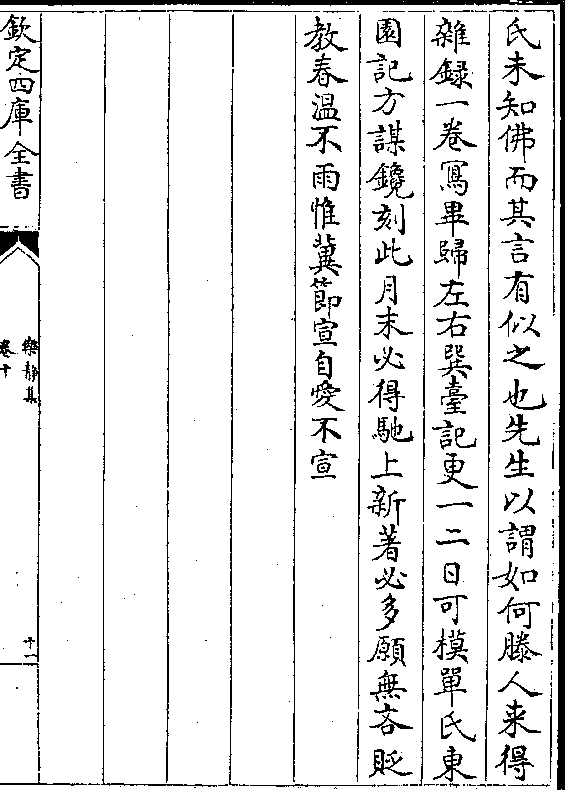 氏未知佛而其言有似之也先生以謂如何滕人来得
雜録一卷寫畢歸左右巽臺記更一二日可模單氏東
園記方謀鑱刻此月末必得馳上新著必多願無吝貶
教春温不雨惟冀節宣自愛不宣
欽定四庫全書
樂静集
卷十
十一